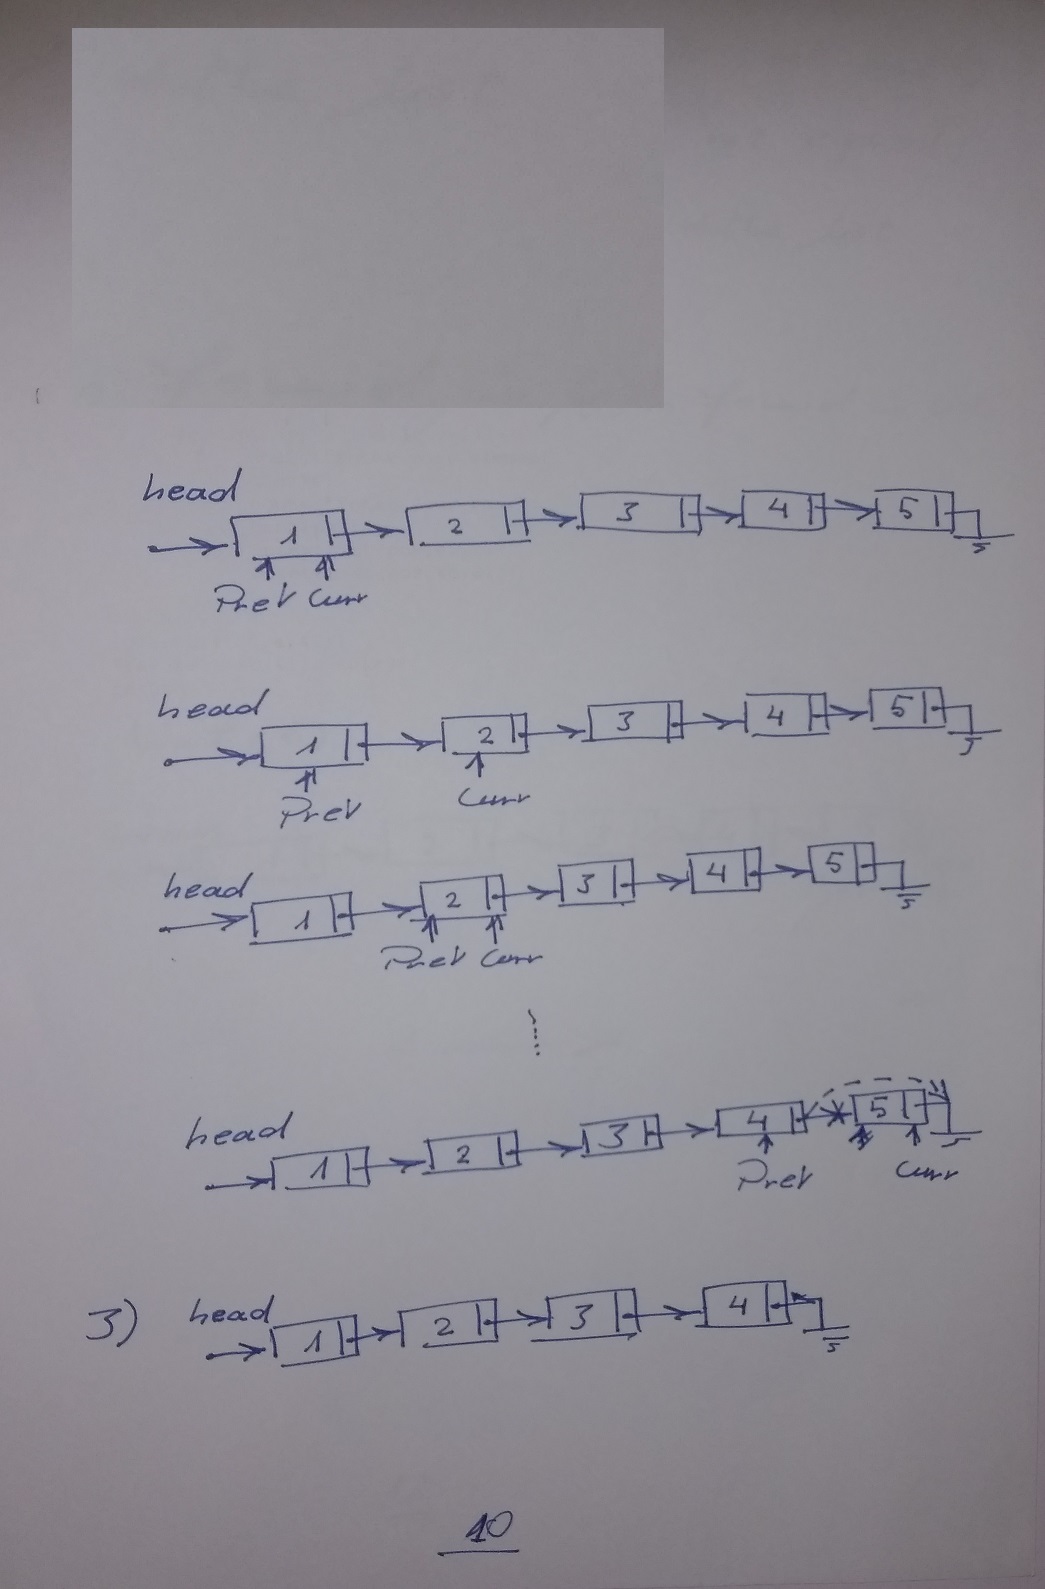 head
1 2 3 4 5
Prev Curr
head
1 2 3 4 5
Prev Curr
head
1 2 3 4 5
Prev Curr
head
1 2 3 4 5
Prev Curr
3) head
1 2 3 4
10